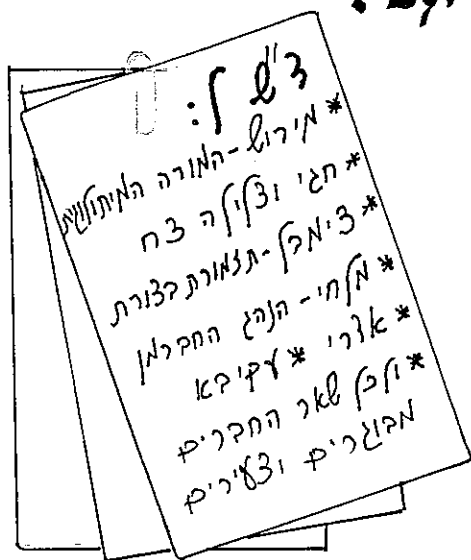 ד"ש ל:
* מירוש - המורה המיתולוגית
* חגי וצלילה צח
* צימבל - תזמורת בצורת
* מלחי - הנהג החברמן
* * עקיבא
* ולכל שאר החברים
מבוגרים וצעירים